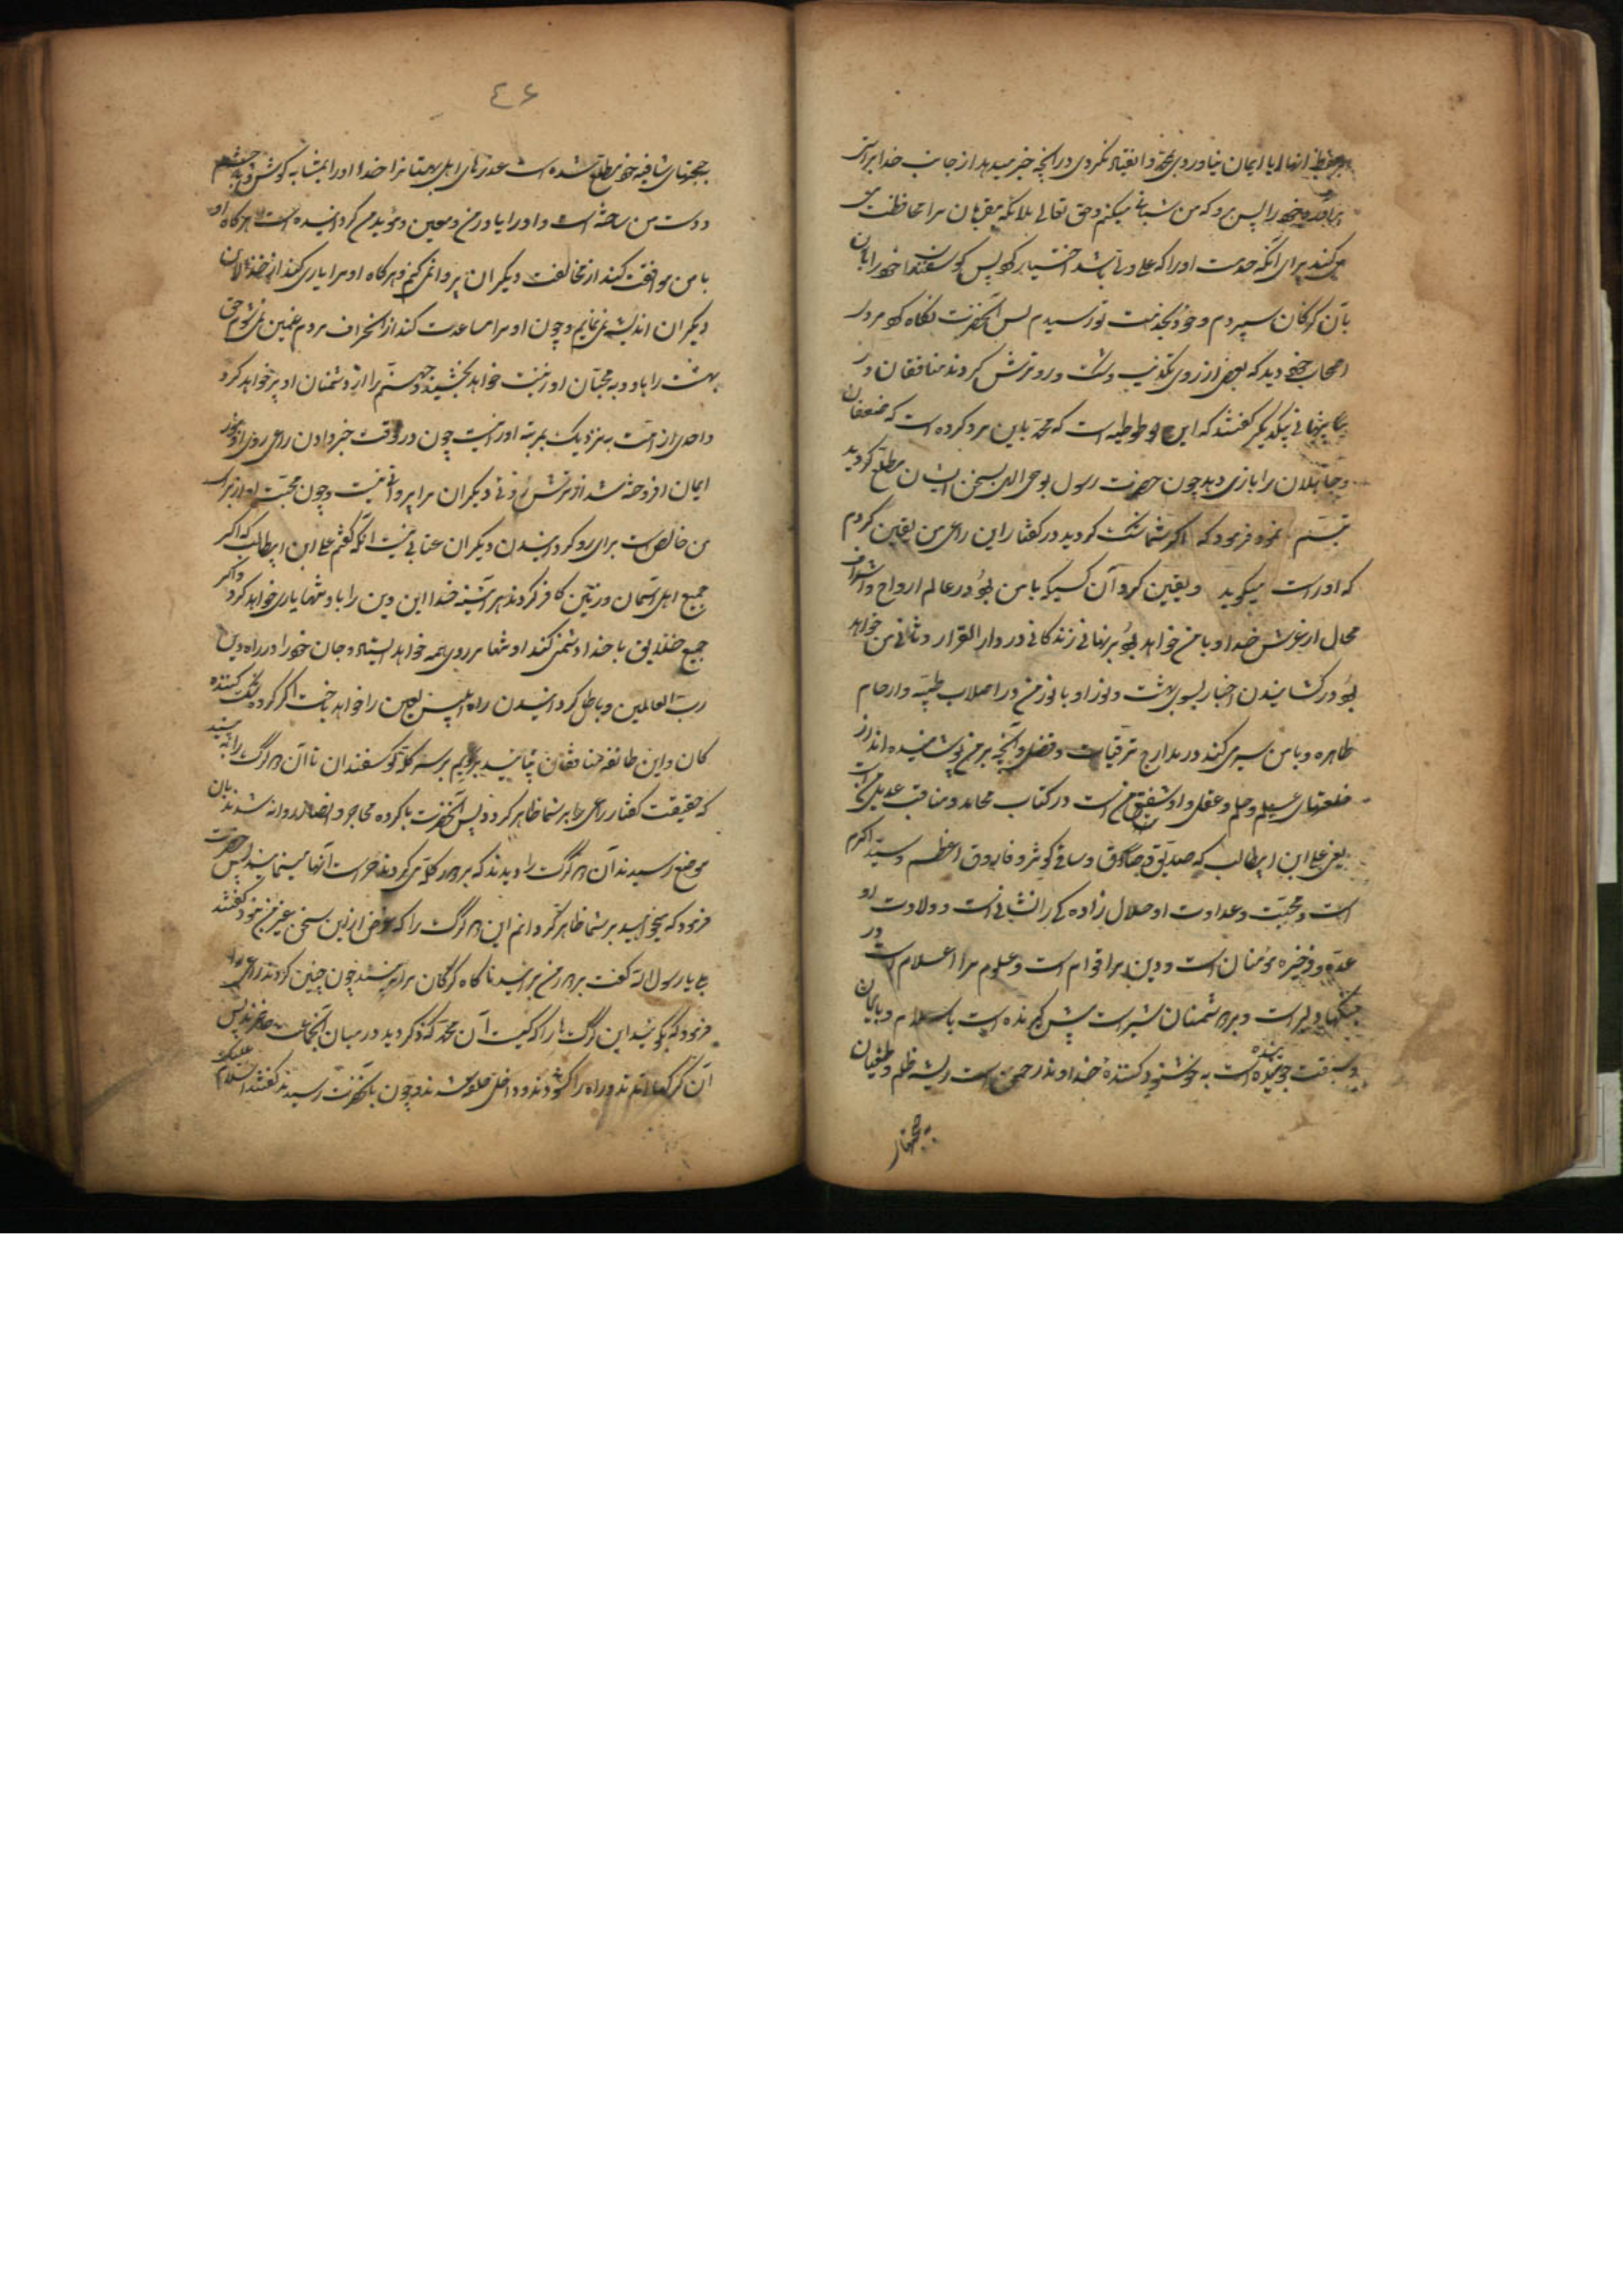 انها ایا ایمان نیاوردی بمحمد و انقیاد نکردی در آنچه خبر میدهد از جانب خدا برای
را پس برو که من شبانی میکنم و حق تعالی ملائکه مقربان مرا محافظت می
کنند برای آنکه خدمت او را که علی ولی باشد اختیار کرده پس گوسفندها خود را بان
بآن گرگان سپردم و خود بخدمت تو رسیدم پس آنحضرت نگاه کرد بر روی
اصحاب خود دید که بعضی از روی تکذیب و شک رو ترش کردند منافقان در
پنهانی بیکدیگر گفتند که این توطئه است که محمد باین مرد کرده است که ضعیفان
و جاهلان را بازی دهد چون حضرت رسول بوحی الهی بسخن ایشان مطلع گردید
تبسم نموده فرمود که اگر شما شک کردید در گفتار این راعی من یقین کردم
که او راست میگوید و یقین کرد آن کسیکه با من بود در عالم ارواح و اشراف
محال از عرش خدا و با من خواهد بود بر نهانی زندگانی در دار القرار و ثانی من خواهد
بود در کشانیدن اخیار بسوی بهشت و نور او با نور من در اصلاب طیبه و ارحام
طاهره و با من سیر می کند در مدارج ترقیات و فضل و آنچه بر من پوشانیده اند از
خلعتهای علم و حلم و عقل و او شقیق من است در کتاب محامد و مناقب عدیل من است
یعنی علی ابن ابیطالب که صدیق و صادق و ساقی کوثر و فاروق اعظم و سید اکرم
است و محبت و عداوت او حلال زاده گی را نشانی است و ولایت او
عده و ذخیره مومنان است و دین را قوام است و علوم مرا اعلام است در
جنگها دلیر است و بر دشمنان شیر است پیش گیرنده است باسلام و بایمان
و سبقت جوینده است به خوشنود کننده خداوند رحمن است ریشه ظلم و طغیان
بحجتهای
٤۶
بحجتهای شافیه خود مطلع شده است عذرهای اهل بهتان را خدا او را بمثابه گوش و چشم
و دست من ساخته است و او را یاور من و معین و مؤید من گردانیده است هرگاه او
با من موافقت کند از مخالفت دیگران پروا نمی کنم و هرگاه او مرا یاری کند از خذلان
دیگران اندیشه نمی نمایم و چون او مرا مساعدت کند از انحراف مردم غمگین نمی شوم حق
بهشت را باو و به محبان او زینت خواهد بخشید و جهنم را از دشمنان او پر خواهد کرد
واحدی از امت به نزدیک بمرتبه او را نیست چون در وقت خبر دادن راعی روی او بنور
ایمان افروخته شد از ترش روئی دیگران مرا پروا نیست و چون محبت او از برای
من خالص است برای رو گردانیدن دیگران عنائی نیست آنکه گفتم علی ابن ابیطالب که اگر
جمیع اهل آسمان و زمین کافر گردند هر آینه خدا این دین را باو تنها یاری خواهد کرد و اگر
جمیع خلایق با خدا دشمنی کنند او تنها بر روی همه خواهد ایستاد و جان خود را در راه دین
رب العالمین و باطل گردانیدن راه ابلیس لعین را خواهد باخت اگر گروه شک کننده
کان و این طائفه منافقان بیائید برویم بر سر گله گوسفندان تا آن دو گرگ را به بینید
که حقیقت گفتار راعی را بر شما ظاهر گردد پس آنحضرت با گروه مهاجر و انصار روانه شدند بان
موضع رسیدند آن دو گرگ را دیدند که بر دور گله می گردند حراست آنها مینمایند پس حضرت
فرمود که میخواهید بر شما ظاهر گردانم این دو گرگ را که غرض از این سخن بغیر من نبود گفتند
بلی یا رسول الله گفت بر دور من برآئید تا گاه گرگان مرا نبینند چون چنین کردند راعی را
فرمود که بگوئید این گرگ ها را که کیست آن محمد که ذکر کردید در میان آنجماعت حاضرند پس
آن گرگها آمدند و راه را گشودند و داخل حلقه شدند و چون بآنحضرت رسیدند گفتند السلام علیک